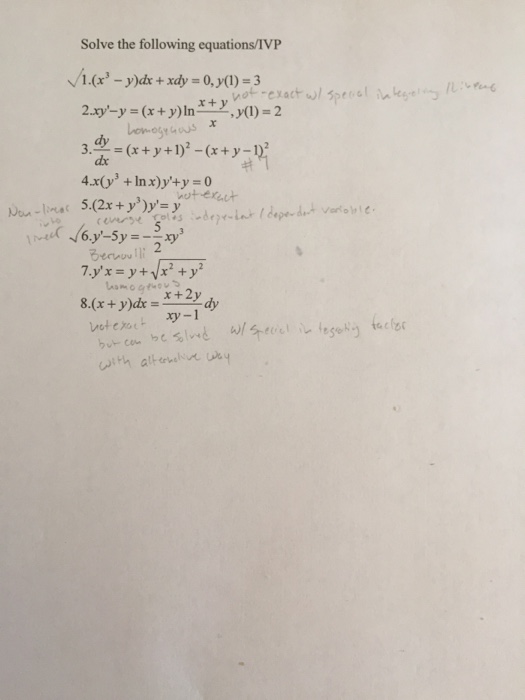 Solve the following equations/IVP
√1.(x³ – y)dx + xdy = 0, y(1) = 3
not-exact w/ special
2.xy'–y = (x + y) ln (x + y)/x, y(1) = 2
homogenous
3. dy/dx = (x + y + 1)² – (x + y – 1)²
#7
4.x(y³ + ln x)y'+y = 0
not-exact
Non-linear into linear
5.(2x + y³)y'= y
reverse roles independent / dependent variable.
√6.y'–5y = – 5/2 xy³
Bernoulli
7.y'x = y + √(x² + y²)
homogenous
8.(x + y)dx = (x + 2y)/(xy – 1) dy
not exact w/ special integrating factor
but can be solved
with alternative way